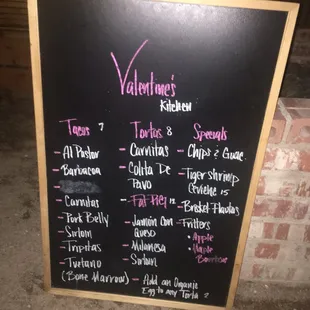 Valentine's
Kitchen
Tacos 7
- Al Pastor
- Barbacoa
-
- Carnitas
- Pork Belly
- Sirloin
- Tripitas
- Tuetano
(Bone Marrow)
Tortas 8
- Carnitas
- Colita De
Pavo
- Fat Pig 12
- Jamón Con
Queso
- Milanesa
- Sirloin
- Add an Organic
Egg to any Torta 2
Specials
- Chips & Guac
- Tiger shrimp
Ceviche 15
- Brisket Flautas
- Fritters
• Apple
• Maple